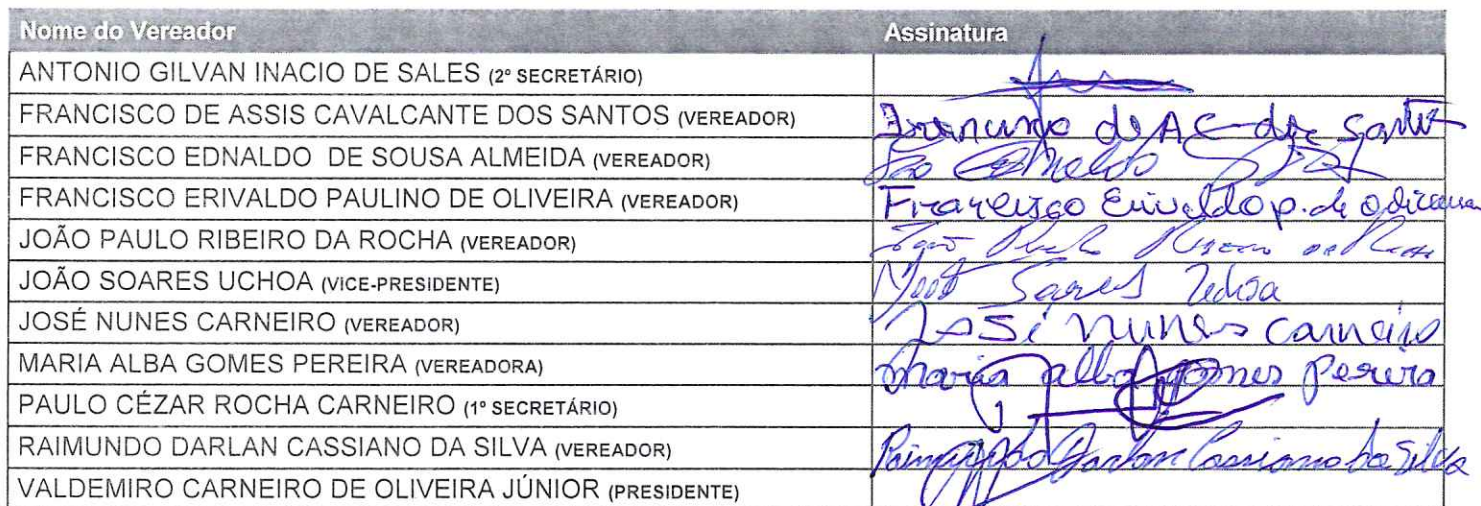 Nome do Vereador Assinatura
ANTONIO GILVAN INACIO DE SALES (2º SECRETÁRIO)
FRANCISCO DE ASSIS CAVALCANTE DOS SANTOS (VEREADOR) de A C dos Santos
FRANCISCO EDNALDO DE SOUSA ALMEIDA (VEREADOR)
FRANCISCO ERIVALDO PAULINO DE OLIVEIRA (VEREADOR) Francisco Erivaldo p. de oliveira
JOÃO PAULO RIBEIRO DA ROCHA (VEREADOR)
JOÃO SOARES UCHOA (VICE-PRESIDENTE) Soares Uchoa
JOSÉ NUNES CARNEIRO (VEREADOR) José nunes carneiro
MARIA ALBA GOMES PEREIRA (VEREADORA) maria alba gomes Pereira
PAULO CÉZAR ROCHA CARNEIRO (1º SECRETÁRIO)
RAIMUNDO DARLAN CASSIANO DA SILVA (VEREADOR) Raimundo Darlan Cassiano da Silva
VALDEMIRO CARNEIRO DE OLIVEIRA JÚNIOR (PRESIDENTE)